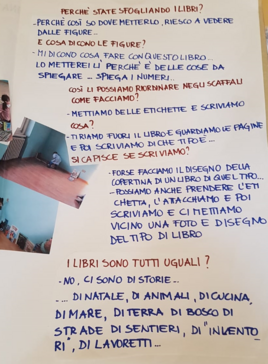 PERCHÈ STATE SFOGLIANDO I LIBRI?
-PERCHÈ COSÌ SO DOVE METTERLO, RIESCO A VEDERE
DALLE FIGURE..
E COSA DICONO LE FIGURE?
-MI DICONO COSA FARE CON QUESTO LIBRO..
LO METTEREI LÌ PERCHÈ È DELLE COSE DA
SPIEGARE... SPIEGA I NUMERI..
COSÌ LI POSSIAMO RIORDINARE NEGLI SCAFFALI
COME FACCIAMO?
-METTIAMO DELLE ETICHETTE E SCRIVIAMO
COSA?
-TIRIAMO FUORI IL LIBRO E GUARDIAMO LE PAGINE
E POI SCRIVIAMO DI CHE TIPO È...
SI CAPISCE SE SCRIVIAMO?
-FORSE FACCIAMO IL DISEGNO DELLA
COPERTINA DI UN LIBRO DI QUEL TIPO...
-POSSIAMO ANCHE PRENDERE L'ETI
CHETTA, L'ATTACCHIAMO E POI
SCRIVIAMO E CI METTIAMO
VICINO UNA FOTO E DISEGNO
DEL TIPO DI LIBRO
I LIBRI SONO TUTTI UGUALI?
-NO, CI SONO DI STORIE...
-... DI NATALE, DI ANIMALI, DI CUCINA,
DI MARE, DI TERRA DI BOSCO DI
STRADE DI SENTIERI, DI "INVENTO
RI", DI LAVORETTI...